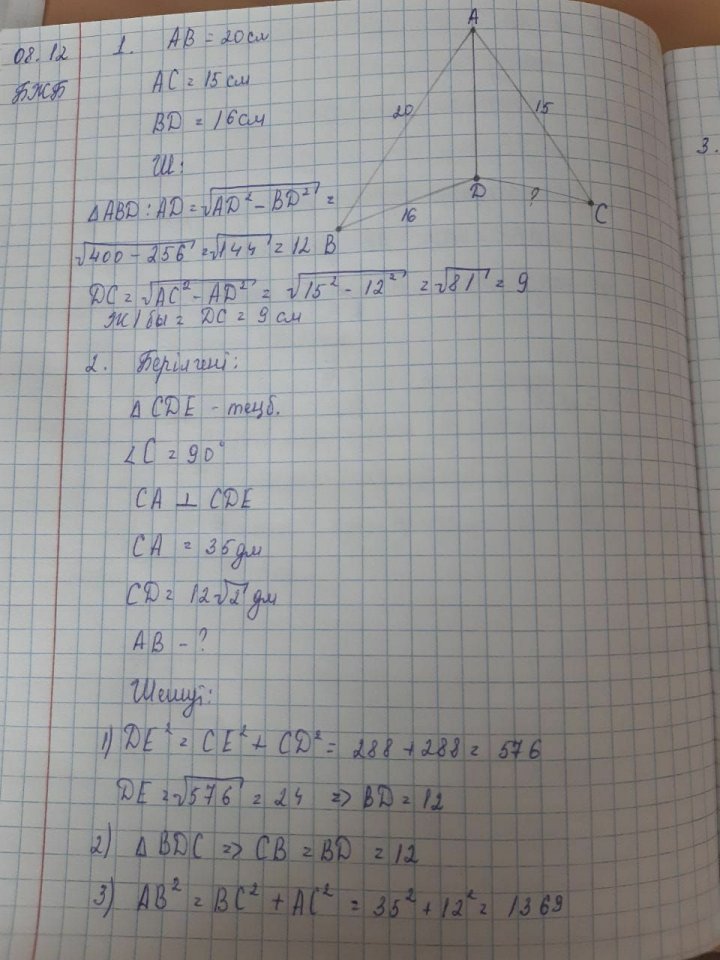 08.12
БЖБ
1. AB = 20 см
AC = 15 см
BD = 16 см
Ш:
△ABD: AD = √AD² − BD² =
√400 − 256 = √144 = 12
DC = √AC² − AD² = √15² − 12² = √81 = 9
Ж/бы = DC = 9 см
A
20
15
16
D
?
B
C
2. Берілгені:
△ CDE - теңб.
∠C = 90°
CA ⊥ CDE
CA = 35 дм
CD = 12√2 дм
AB - ?
Шешуі:
1) DE² = CE² + CD² = 288 + 288 = 576
DE = √576 = 24 => BD = 12
2) △ BDC => CB = BD = 12
3) AB² = BC² + AC² = 35² + 12² = 1369
3.